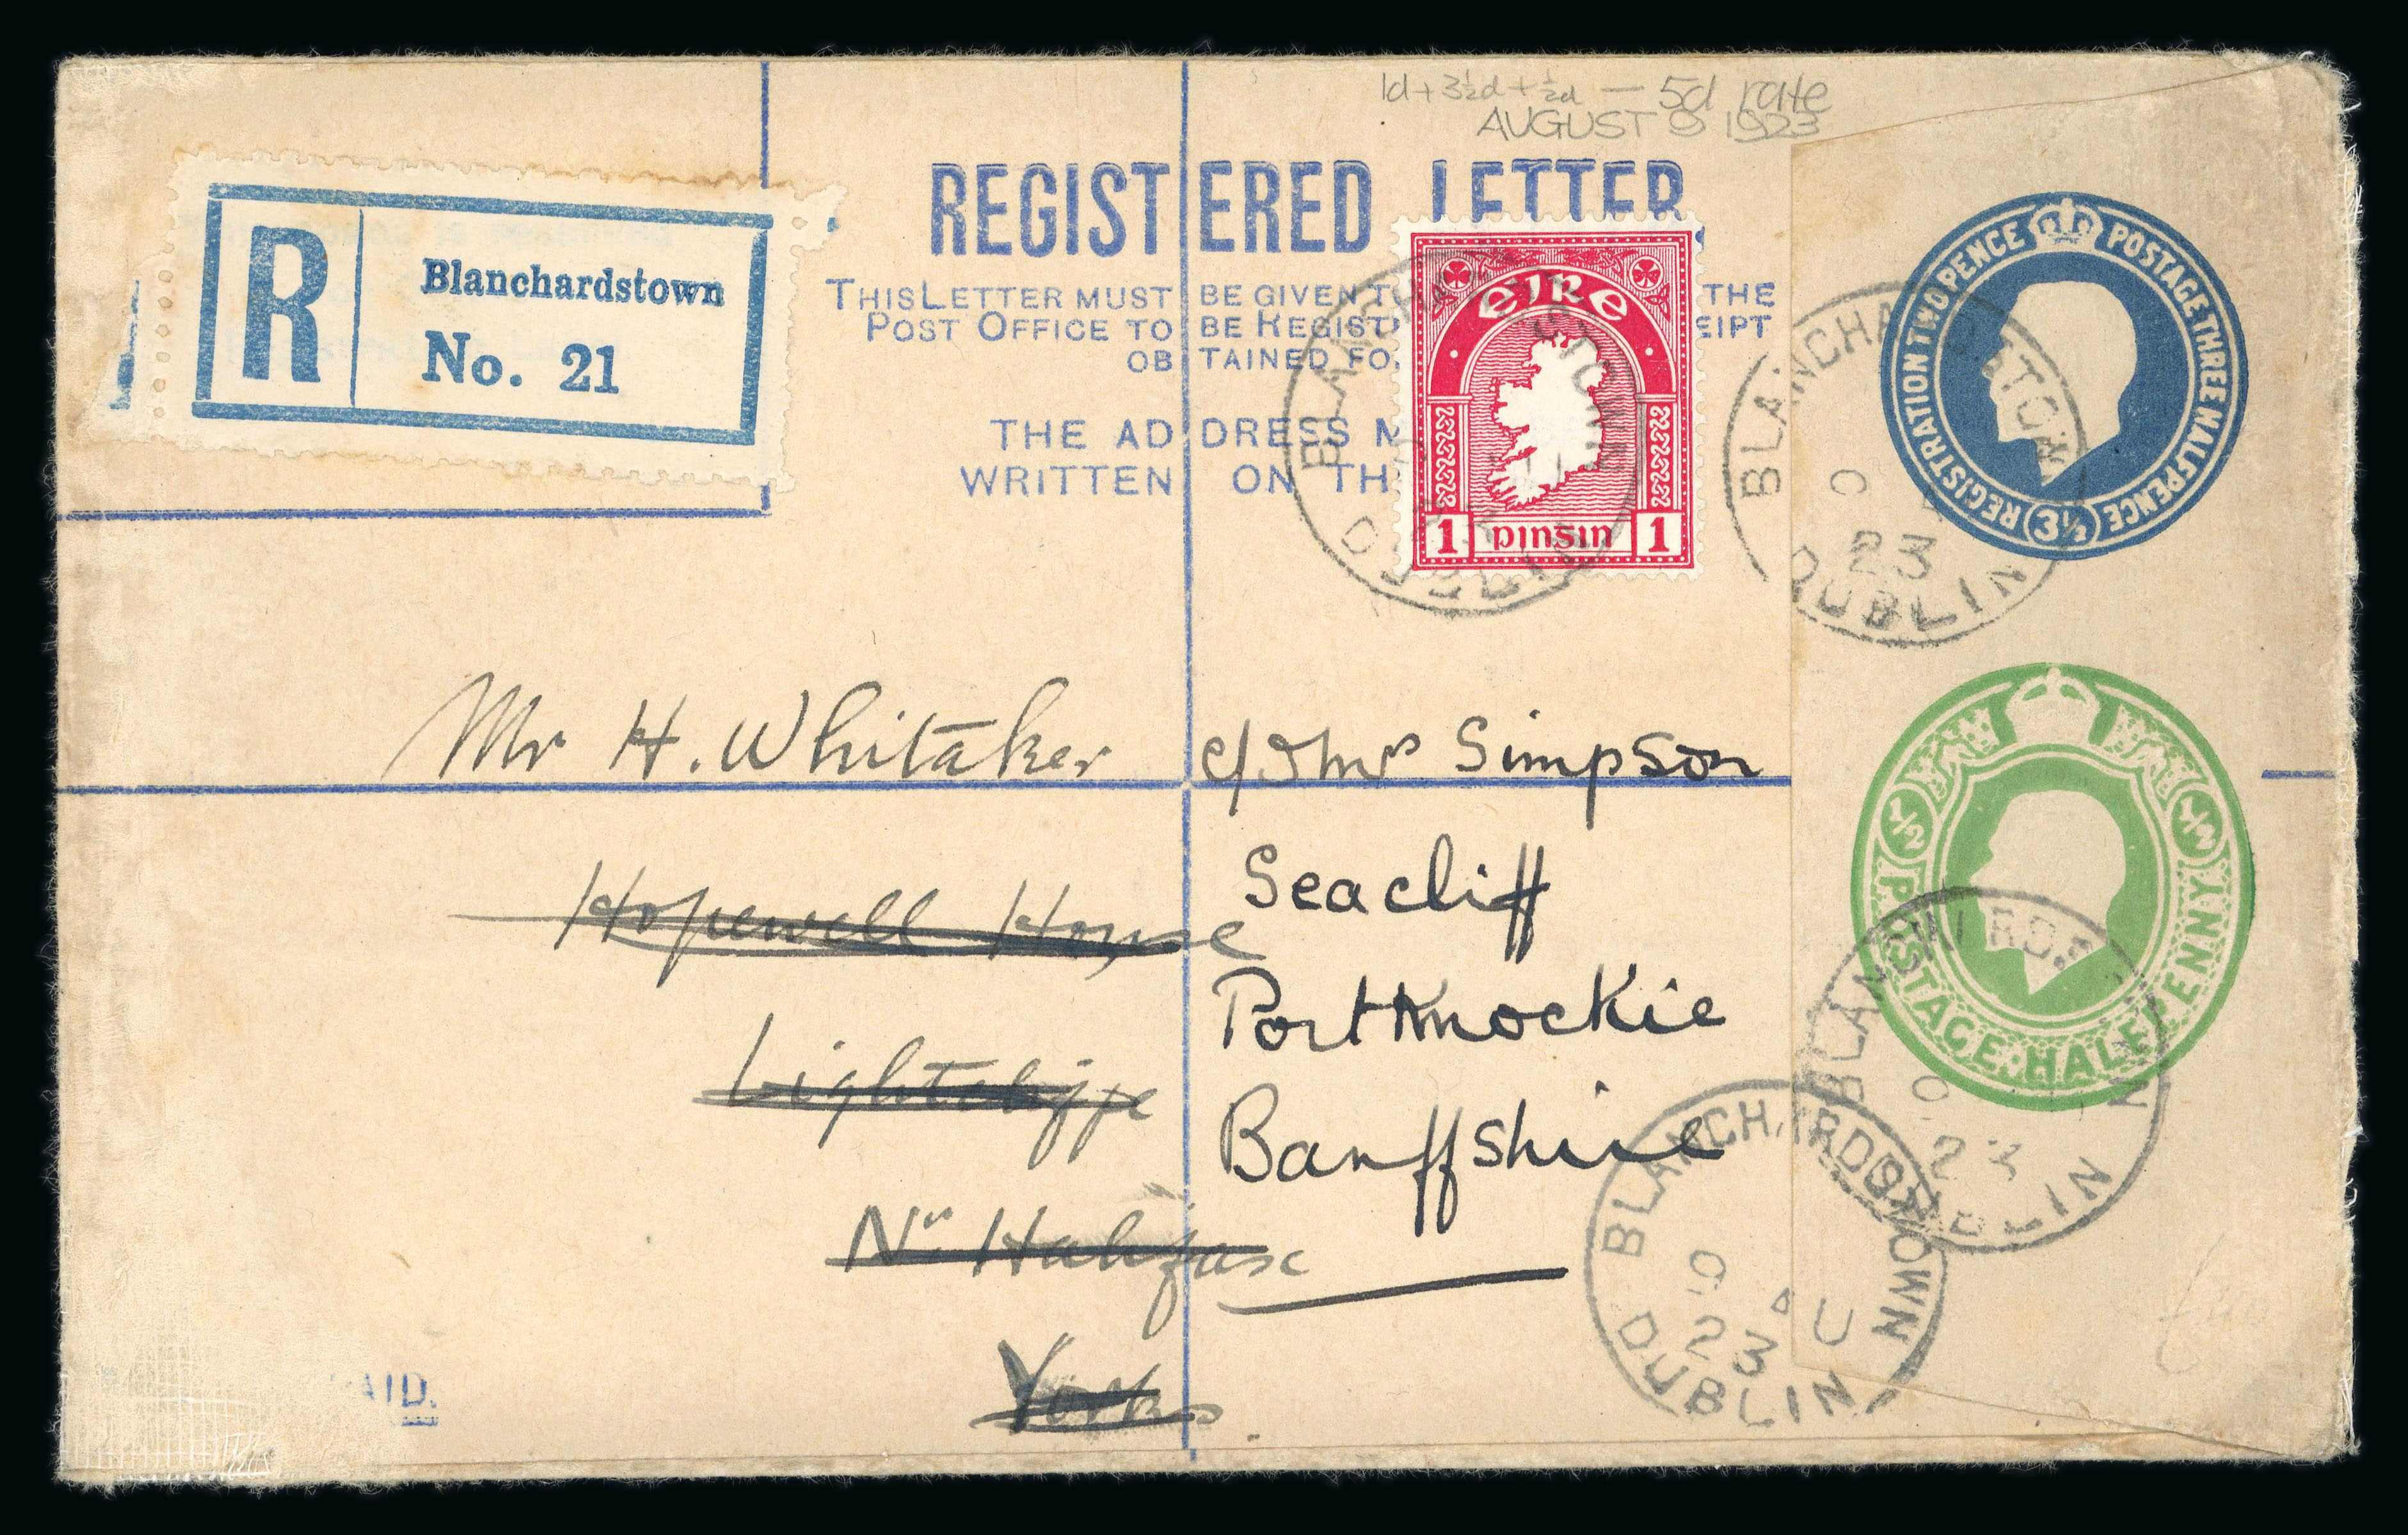 1d + 3½d + ½d — 5d rate
AUGUST 9 1923
REGISTERED LETTER
THIS LETTER MUST BE GIVEN THE
POST OFFICE TO BE REGIST EIPT
OBTAINED FO
THE ADDRESS M
WRITTEN ON TH
R
Blanchardstown
No. 21
EIRE
1 pinsin 1
BLANCHARDSTOWN
DUBLIN
REGISTRATION TWO PENCE POSTAGE THREE HALFPENCE
3½
BLANCHARDSTOWN
23
DUBLIN
½ ½
POSTAGE·HALFPENNY
Mr H. Whitaker c/o Mrs Simpson
Hopewell House
Seacliff
Lightcliffe
Portknockie
Nr Halifax
Banffshire
Yorks
BLANCHARDS
23
DUBLIN
BLANCHARDSTOWN
9 AU
23
DUBLIN
AID.